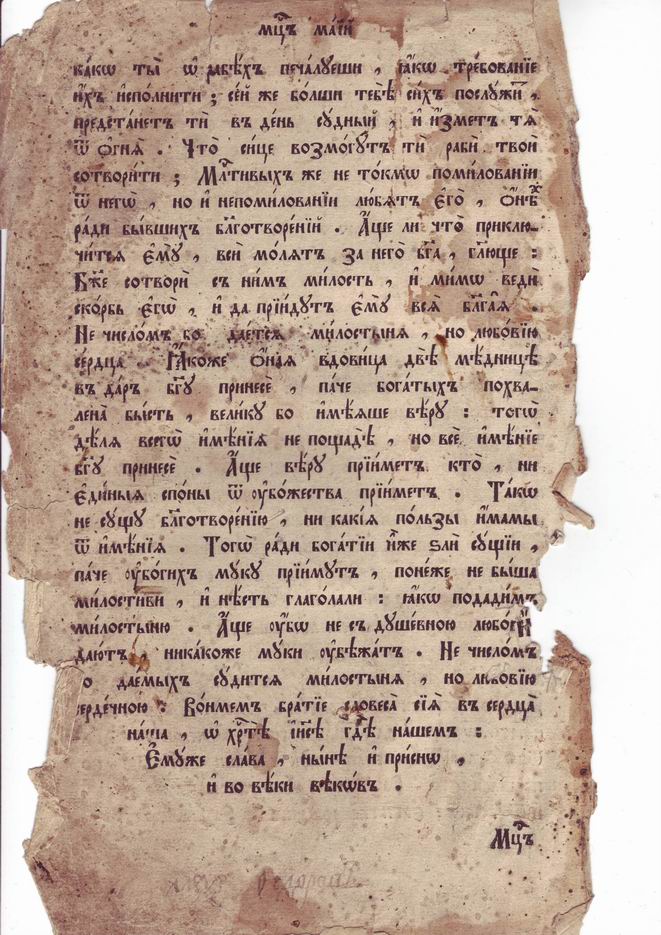 мц҃ъ ма́їй
ка́кѡ ты̀ ѡ҆ рабѣ́хъ печа́луеши , ꙗ҆́кѡ тре́бованїе
и҆́хъ и҆спо́лнити ; се́й же бо́лши тебѣ̀ си́хъ послꙋжи̑ ,
предста́нетъ тѝ въ де́нь сꙋ́дный , и҆ и҆́зметъ тѧ̀
ѿ ѻ҆гнѧ̀ . Что̀ си́це возмо́гꙋтъ тѝ рабѝ твоѝ
сотвори́ти ; Млⷭ҇тивыхъ же не то́кмѡ поми́лованїи
ѿ негѡ̀ , но и҆ непоми́лованїи лю́бѧтъ є҆го̀ , ѻ҆нѣ́хъ
ра́ди бы́вшихъ бл҃готворе́нїй . А҆́ще ли что̀ приклю-
чи́тсѧ є҆мꙋ̀ , всѝ мо́лѧтъ за него̀ бг҃а , гл҃юще :
Бж҃е сотворѝ съ ни́мъ ми́лость , и҆ ми́мѡ ведѝ
ско́рбь є҆гѡ̀ , и҆ да прїи́дꙋтъ є҆мꙋ̀ всѧ̑ бл҃га̑ѧ .
Не число́мъ бо дае́тсѧ ми́лостынѧ , но любо́вїю
се́рдца . Ꙗ҆́коже ѻ҆́наѧ вдови́ца двѣ̀ мѣ́дницѣ
въ да́ръ бг҃ꙋ принесѐ , па́че бога́тыхъ похва-
лена̀ бы́сть , вели́кꙋ бо и҆мѣ́ѧше вѣ́рꙋ : тогѡ̀
дѣ́лѧ всегѡ̀ и҆мѣ́нїѧ не пощадѣ̀ , но всѐ и҆мѣ́нїе
бг҃ꙋ принесѐ . А҆́ще вѣ́рꙋ прїи́метъ кто̀ , ни
є҆ди́ныѧ спо́ны ѿ ᲂу҆бо́жества прїи́метъ . Та́кѡ
не сꙋ́щꙋ бл҃готворе́нїю , ни какі́ѧ по́льзы и҆́мамы
ѿ и҆мѣ́нїѧ . Тогѡ̀ ра́ди бога́тїи и҆̀же ѕлѝ сꙋ́щїи ,
па́че ᲂу҆бо́гихъ мꙋ́кꙋ прїи́мꙋтъ , поне́же не бы́ша
ми́лостиви , и҆ нѣ́сть глаго́лали : ꙗ҆́кѡ подади́мъ
ми́лостыню . А҆́ще ᲂу҆́бѡ не съ дꙋше́вною любо́вїю
даю́тъ , ника́коже мꙋ́ки ᲂу҆бѣжа́тъ . Не число́мъ
о дае́мыхъ сꙋ́дитсѧ ми́лостынѧ , но любо́вїю
серде́чною : Во́нмемъ бра́тїе словеса̀ сїѧ̑ въ сердца̀
на́ша , ѡ҆ хрⷭ҇тѣ̀ і҆и҃сѣ гдⷭ҇ѣ на́шемъ :
Є҆мꙋ́же сла́ва , ны́нѣ и҆ при́снѡ ,
и҆ во вѣ́ки вѣкѡ́въ .
Мц҃ъ